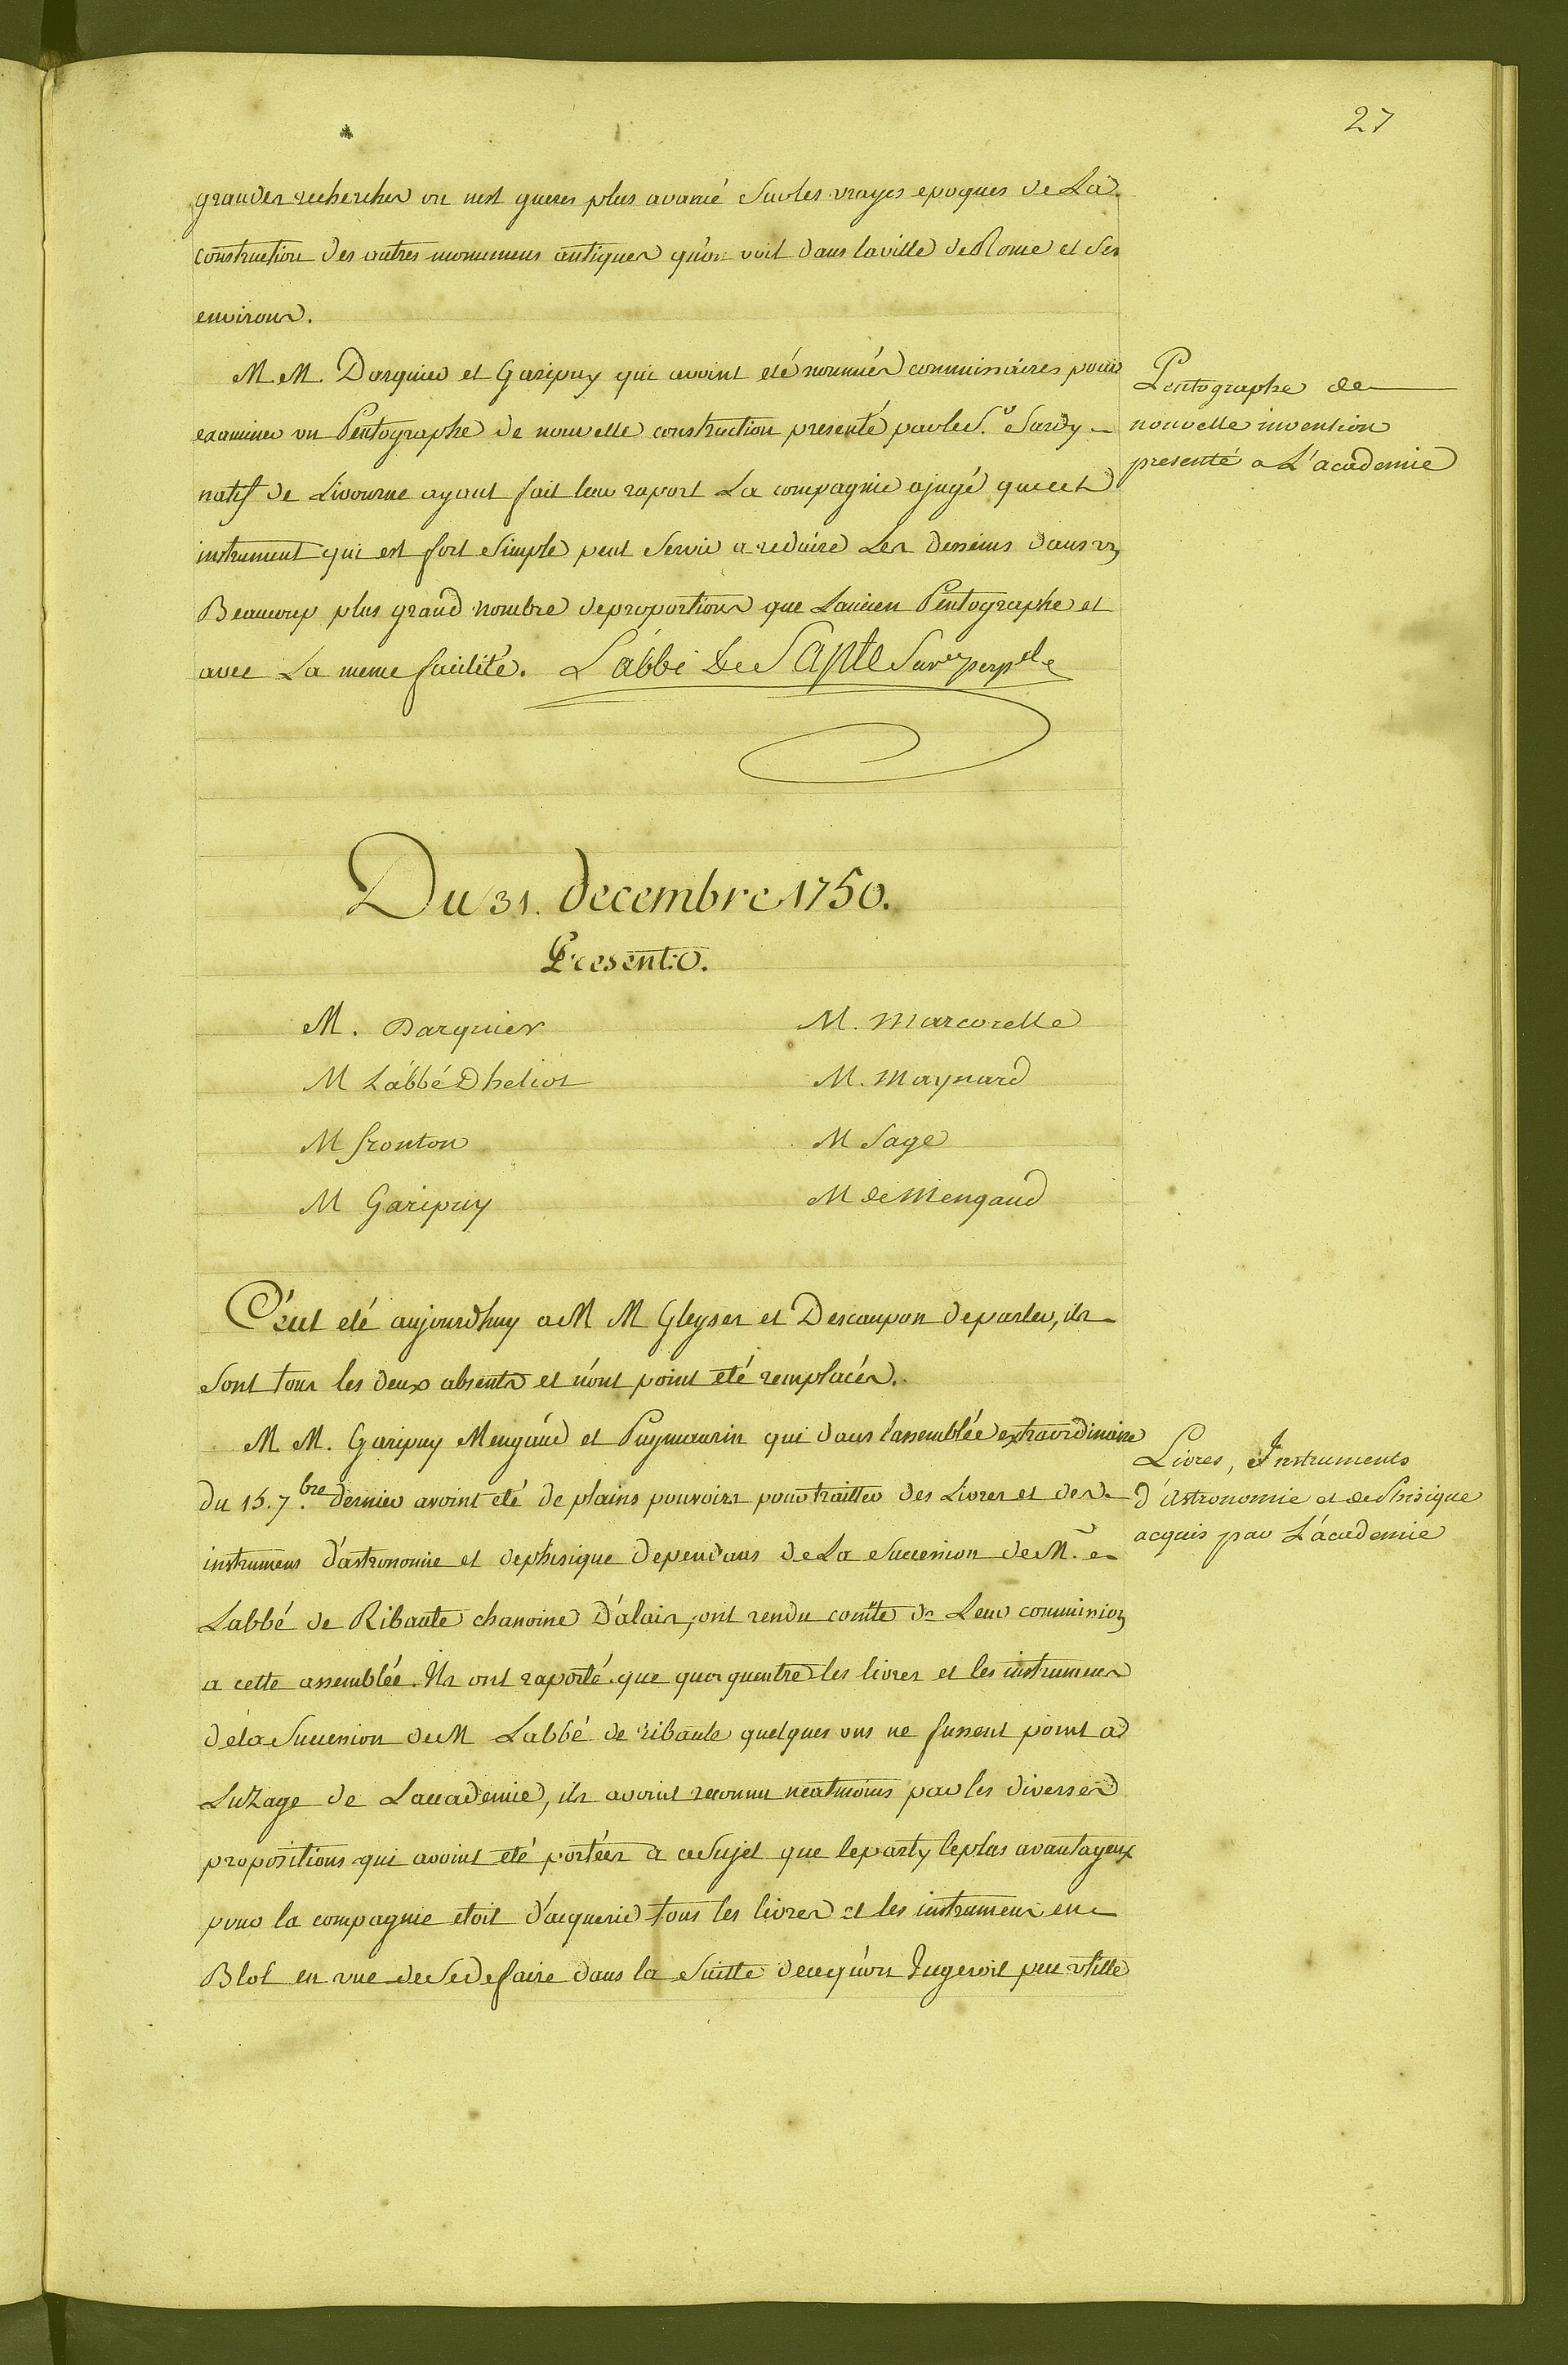 27
grandes recherches on n'est gueres plus avancé sur les vrayes epoques de La
construction des autres monumens antiques qu'on voit dans la ville de Rome et ses
environs.
M M. Darquier et Garipuy qui avoint eté nommés commissaires pour
examiner un Pentographe de nouvelle construction presenté par le S.r Sardy
natif de Livourne ayant fait leur raport La compagnie a jugé que cet
instrument qui est fort simple peut servir a reduire Les desseins dans un
Beaucoup plus grand nombre de proportions que Lancien Pentographe et
avec La meme facilité. L'abbé De Sapte Secre perpele
Pentographe de
nouvelle invention
presenté a L'academie
Du 31. decembre 1750.
Presents.
M. Darquier
M. Marcorelle
M L'abbé Dheliot
M. Maynard
M fronton
M Sage
M Garipuy
M de Mengaud
C'eut eté aujourdhuy a M M Gleyses et Descaupon de parler, ils
sont tous les deux absents et n'ont point eté remplacés.
M M. Garipuy Mengaud et Puymaurin qui dans l'assemblée extraordinaire
du 15. 7.bre dernier avoint eté de plains pouvoirs pour traitter des Livres et des
instrumens d'astronomie et de phisique dependans de La succession de M.
Labbé de Ribaute chanoine D'alais, ont rendu comte de Leur commission
a cette assemblée. Ils ont raporté que quoyqu'entre les livres et les instrumens
de la succession de M Labbé de ribaute quelques uns ne fussent point a
Luzage de Laccademie, ils avoint reconnu neatmoins par les diverses
propositions qui avoint eté portées a ce sujet que le party le plus avantageux
pour la compagnie etoit d'acquerir tous les livres et les instrumens en
Blot en vue de se defaire dans la suitte de ce qu'on Jugeroit peu utille
Livres, Instruments
d'Astronomie et de Phisique
acquis par L'academie